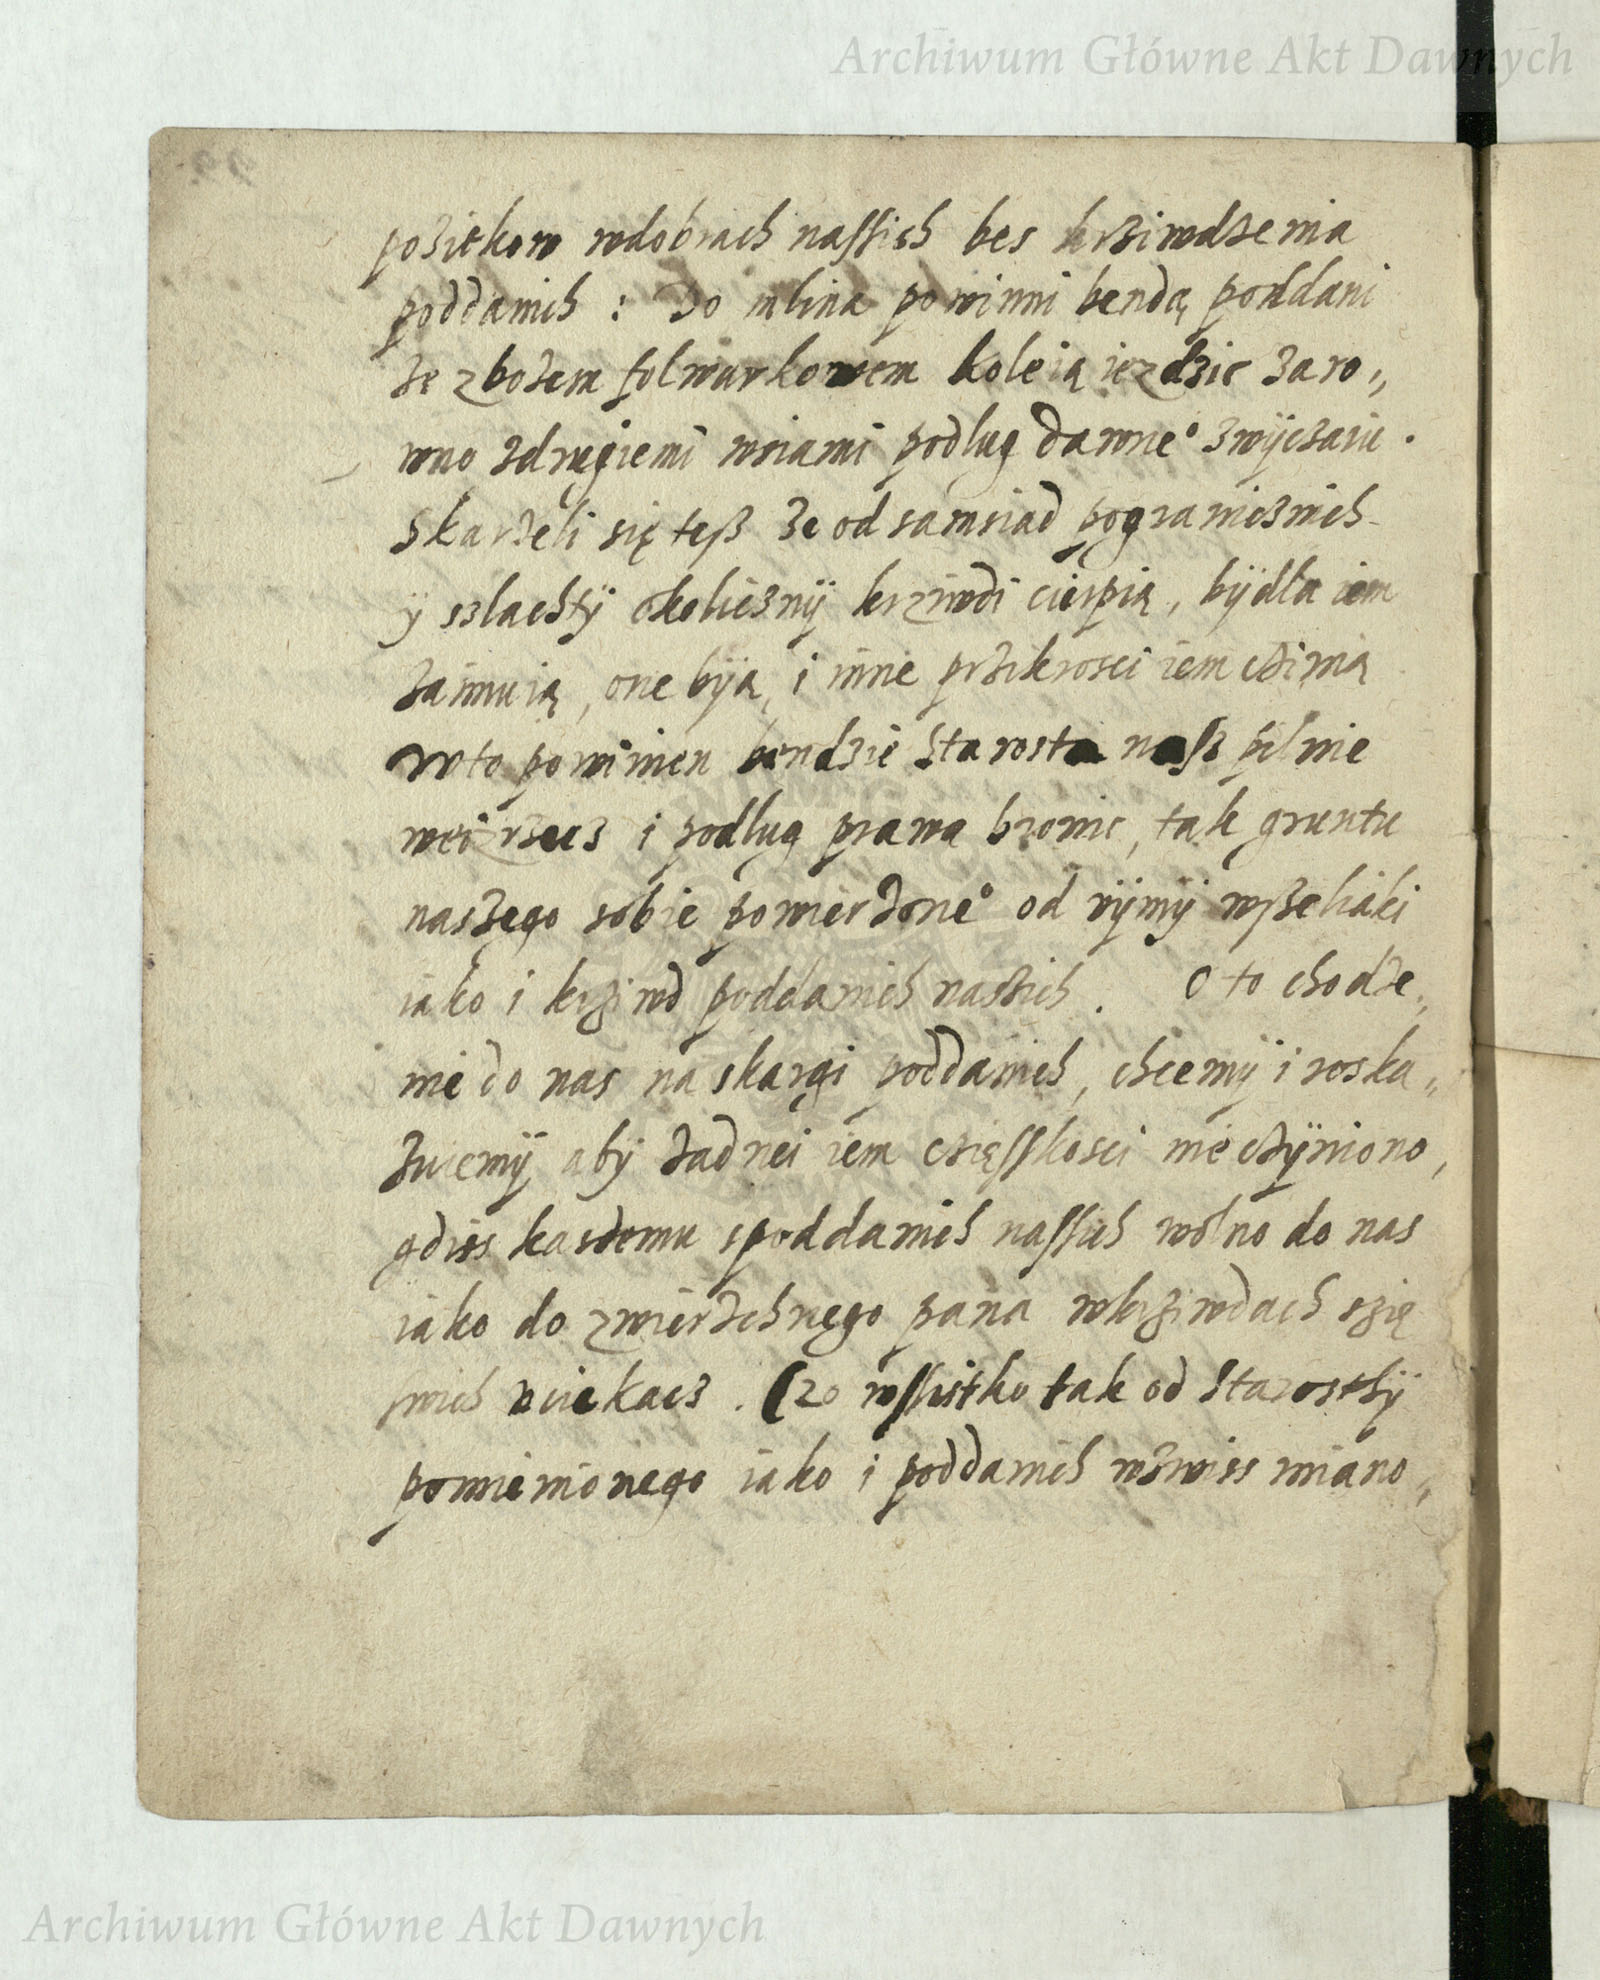 Archiwum Główne Akt Dawnych
pozitkow wdobrach nassich bes krziwdzenia
poddanich : Do mlina powinni bendą poddani
ze zbożem folwarkowem koleią iezdzic zaro„
wno zdrugiemi wsiami podlug dawne° zwÿczaiu .
Skarżeli się teß że od samsiad pogranicznich
ÿ szlachtÿ okolicznÿ krziwdi cierpią, bÿdła iem
zaimuią, one bÿą, i inne przikrosci iem czinią
Wto powinien bendzie Starosta nasz pilnie
weizrzecz i podlug prawa bronic, tak gruntu
naszego sobie powierzone° od uÿmÿ wßeliaki
iako i krziwd poddanich naszich . O to chodze„
nie do nas na skargi poddanich, chcemÿ i roska„
zuiemÿ abÿ żadnei iem cziąsskosci nie czÿniono,
gdiss kazdemu spoddanich nassich wolno do nas
iako do zwierzchnęgo pana wkrziwdach szię
swich uciekacz . Czo wssitko tak od Starosthÿ
pomienionego iako i poddanich wzwiss miano„
Archiwum Główne Akt Dawnych